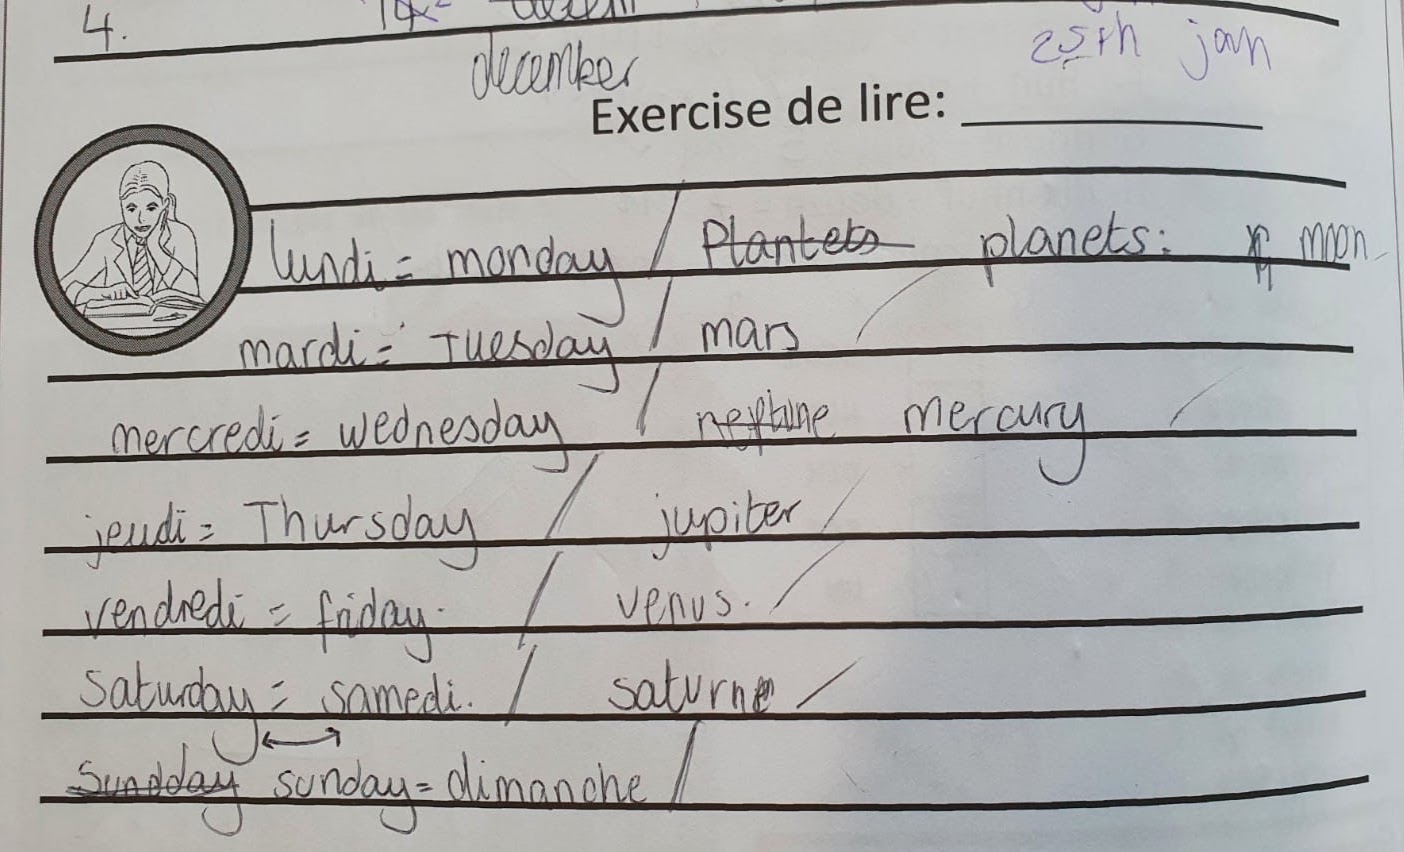 4.
december 25th jan
Exercise de lire:
lundi = monday / Plantets planets: moon
mardi = Tuesday / mars /
mercredi = wednesday / neptune mercury /
jeudi = Thursday / jupiter /
vendredi = friday. / venus. /
Saturday = samedi. / saturne /
Sundday sunday = dimanche /